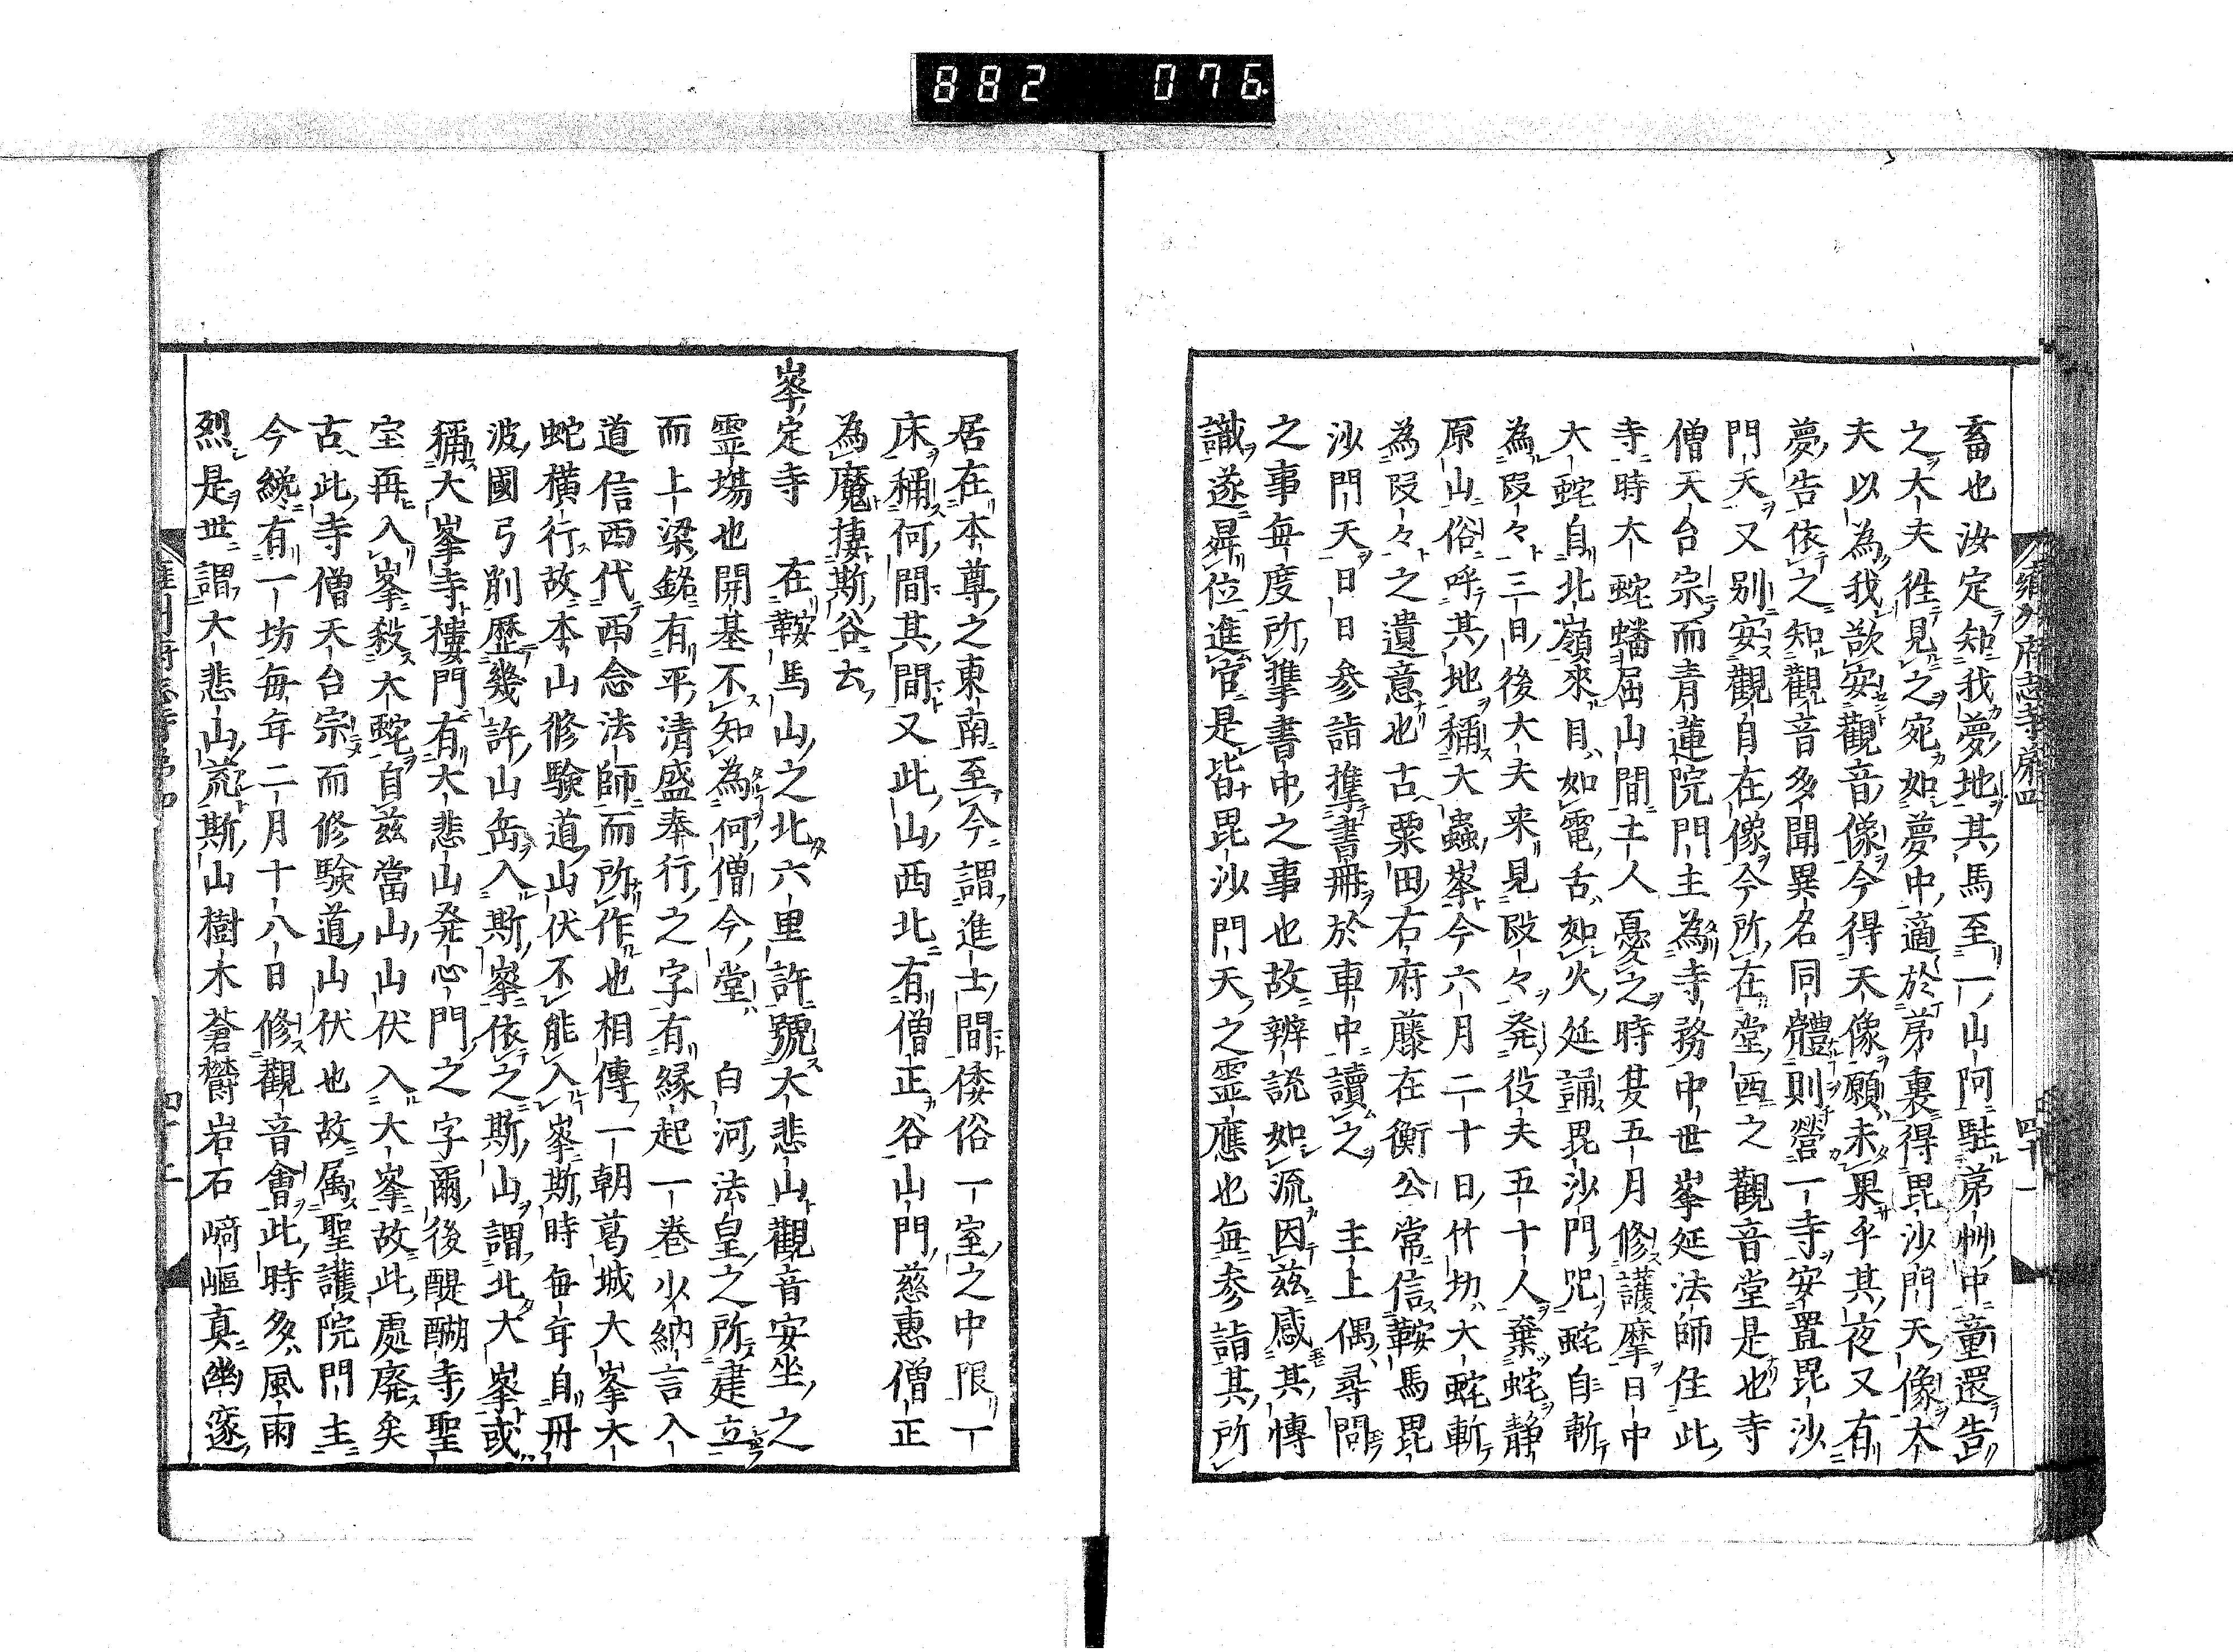 882 076
雍州府志寺第四
四十一
畜也汝定知我夢地其馬至一山阿駐苐艸中童還告
之大夫徃見之宛如夢中適於苐裏得毘沙門天像大
夫以為我欲安觀音像今得天像願未果乎其夜又有
夢告依之知觀音多聞異名同體則營一寺安置毘沙
門天又別安觀自在像今所在堂西之觀音堂是也寺
僧天台宗而青蓮院門主為寺務中世峯延法師住此
寺時大蛇蟠屈山間土人憂之時夏五月修護摩日中
大蛇自北嶺來目如電舌如火延誦毘沙門咒蛇自斬
為段々三日後大夫来見段々発役夫五十人棄蛇静
原山俗呼其地稱大蟲峯今六月二十日竹切大蛇斬
為段々之遺意也古粟田右府藤在衡公常信鞍馬毘
沙門天日日参詣携書冊於車中讀之主上偶尋問
之事毎度所携書中之事也故辨説如流因茲感其博
識遂昇位進官是皆毘沙門天之霊應也毎参詣其所
居在本尊之東南至今謂進士間倭俗一室之中限一
床稱何間其間又此山西北有僧正谷山門慈惠僧正
為魔捿斯谷云
峯定寺　在鞍馬山之北六里許號大悲山觀音安坐之
霊塲也開基不知為何僧今堂白河法皇之所建立
而上梁銘有平清盛奉行之字有緣起一卷少納言入
道信西代西念法師而所作也相傳一朝葛城大峯大
蛇橫行故本山修験道山伏不能入峯斯時毎年自丹
波國弓削歷幾許山岳入斯峯依之斯山謂北大峯或
稱大峯寺樓門有大悲山発心門之字爾後醍醐寺聖
宝再入峯殺大蛇自茲當山山伏入大峯故此處廃矣
古此寺僧天台宗而修験道山伏也故属聖護院門主
今纔有一坊毎年二月十八日修觀音會此時多風雨
烈是世謂大悲山荒斯山樹木蒼欝岩石﨑嶇真幽邃